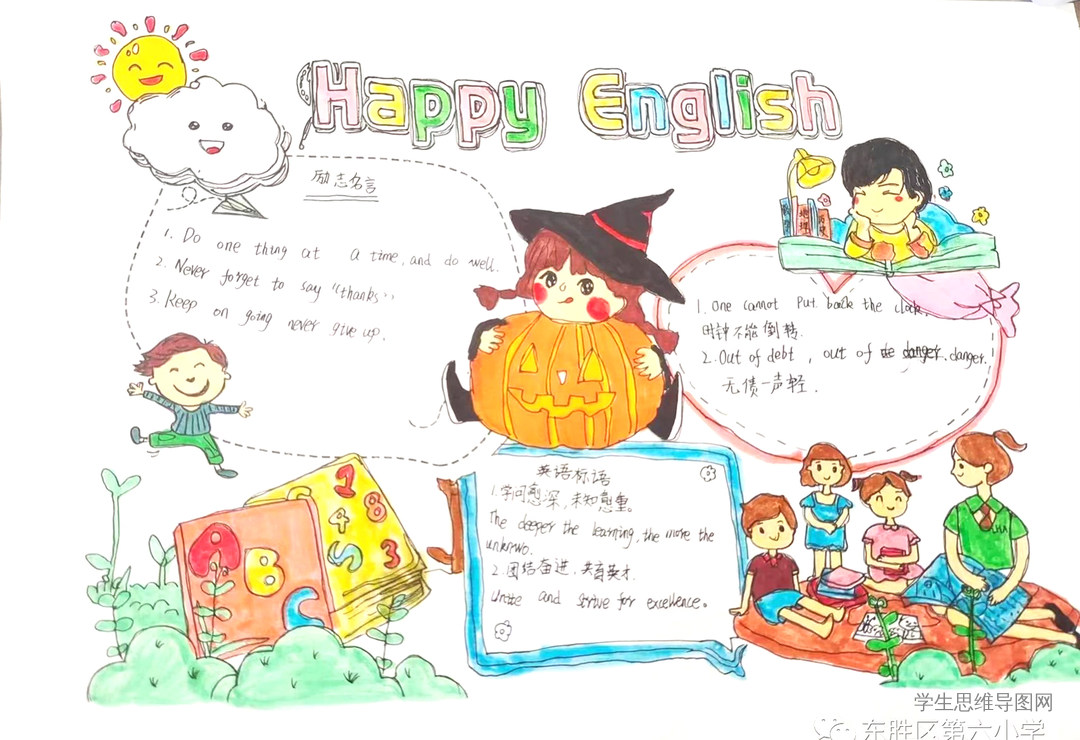 Happy English
励志名言
1. Do one thing at a time, and do well.
2. Never forget to say "thanks"
3. Keep on going never give up.
1. One cannot put back the clock.
时钟不能倒转.
2. Out of debt, out of danger. danger.
无债一声轻.
英语标语
1. 学问愈深,未知愈重。
The deeper the learning, the more the
unknwo.
2. 团结奋进.共育英才.
Unite and strive for excellence。
地理
A B C
1 8
4
5 3
学生思维导图网
东胜区第六小学